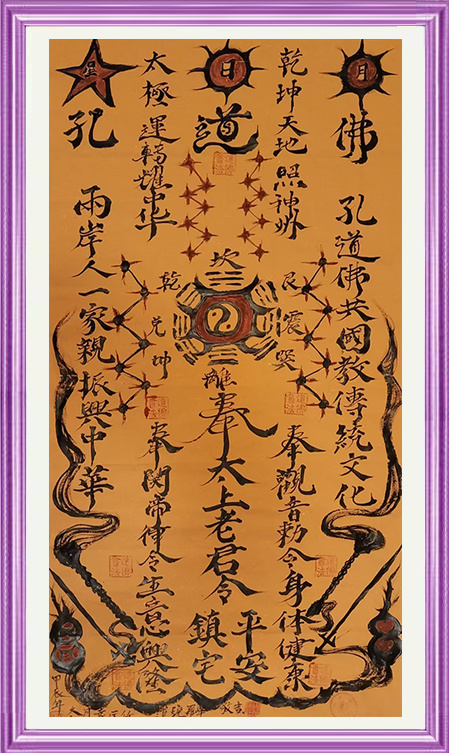 月
佛
孔道佛共國教傳統文化
乾坤天地照神州
日
道
太極運轉耀中华
星
孔
兩岸人一家親振興中華
坎
艮
震
巽
離
坤
兌
乾
奉觀音勅令身体健康
奉太上老君令
平安
鎮宅
奉関帝律令生意興隆
甲辰年